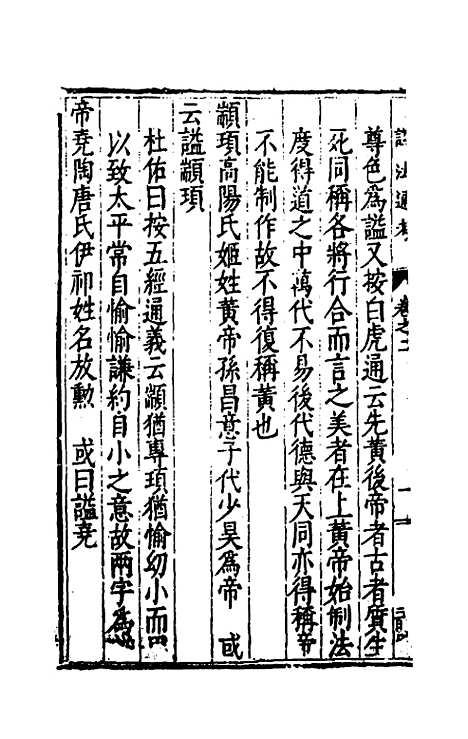 謚法通考 卷之二
尊色爲謚又按白虎通云先黃後帝者古者質生
死同稱各將行合而言之美者在上黃帝始制法
度得道之中萬代不易後代德與天同亦得稱帝
不能制作故不得復稱黃也
顓頊高陽氏姬姓黃帝孫昌意子代少昊爲帝 或
云謚顓頊
杜佑曰按五經通義云顓猶專頊猶愉幼小而
以致太平常自愉愉謙約自小之意故兩字爲
帝堯陶唐氏伊祁姓名放勲 或曰謚堯